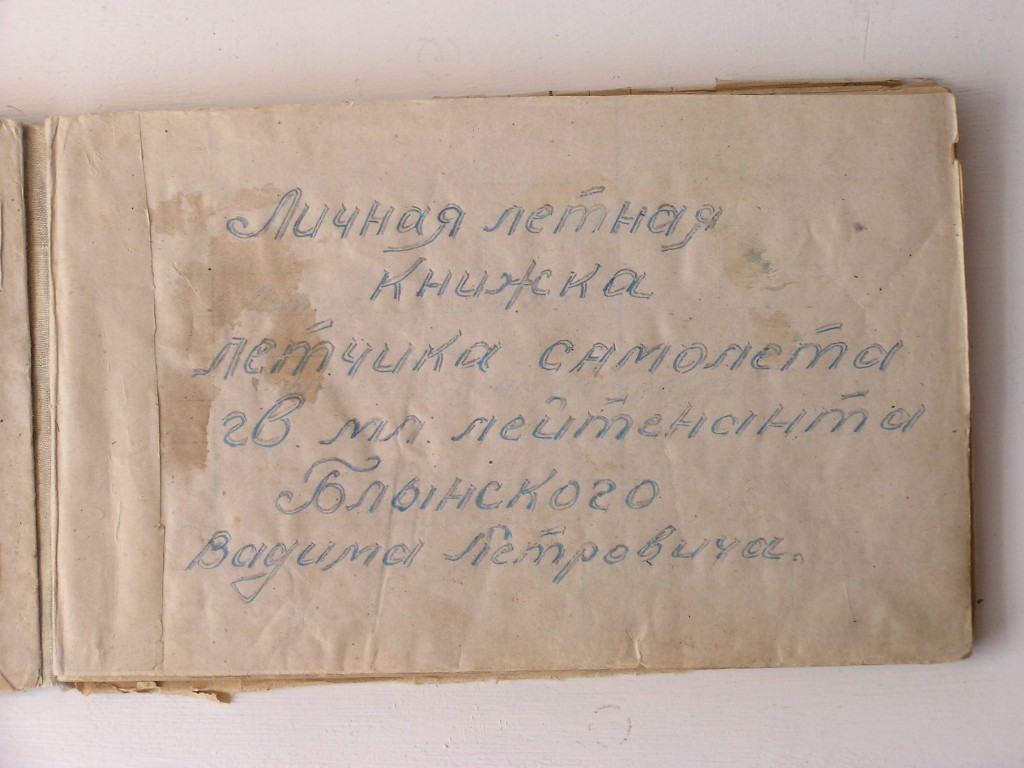 Личная летная
книжка
летчика самолета
гв. мл. лейтенанта
Блынского
Вадима Петровича.